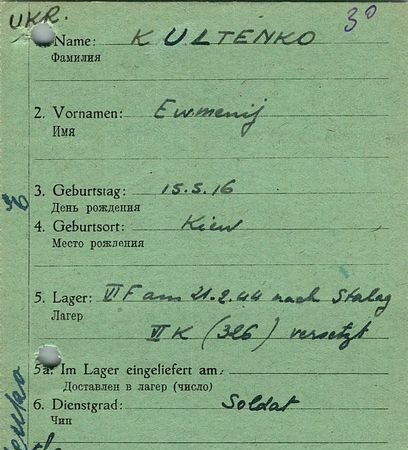 UKR. 30
Name: KULTENKO
Фамилия
2. Vornamen: Ewmenij
Имя
3. Geburtstag: 15.5.16
День рождения
4. Geburtsort: Kiew
Место рождения
5. Lager: VI F am 21.2.44 nach Stalag
Лагер
VI K (326) versetzt
5a. Im Lager eingeliefert am:
Доставлен в лагер (число)
6. Dienstgrad: Soldat
Чин